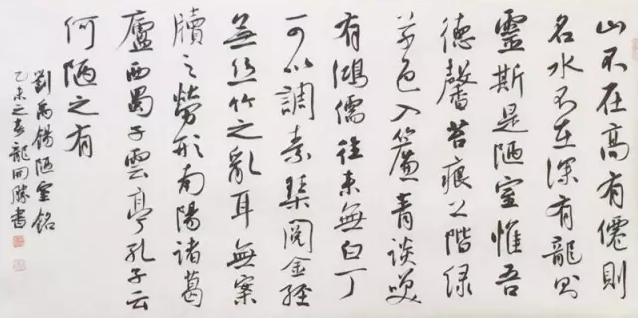 山不在高有僊則
名水不在深有龍則
靈斯是陋室惟吾
德馨苔痕上階緑
草色入簾青談笑
有鴻儒往来無白丁
可以調素琴閲金經
無丝竹之亂耳無案
牘之勞形南陽諸葛
廬西蜀子雲亭孔子云
何陋之有
劉禹錫陋室銘
乙未之春龍開勝書